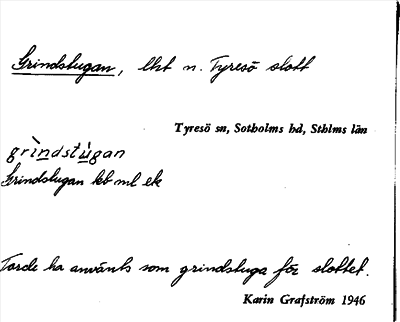 Grindstugan, lht n. Tyresö slott
Tyresö sn, Sotholms hd, Sthlms län
grìndstùgan
Grindstugan kt ml ek
Torde ha använts som grindstuga för slottet.
Karin Grafström 1946